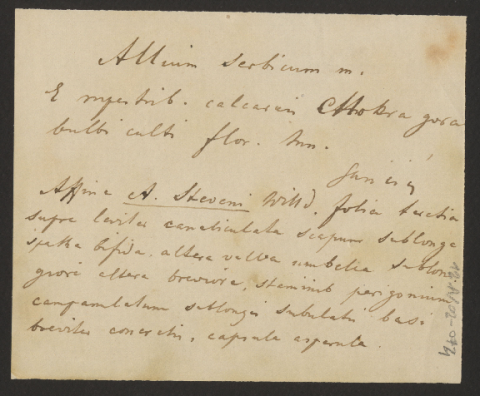 Allium serbicum m.
E rupestrib. calcareis Mokra gora
bulbi culti flor. Jun.
Affine A. Steveni Willd. folia teretia
supra leviter canaliculata scapum sublonge
spatha bifida. altera valva umbella sublon
giore altera breviore, staminib perigonium
campanulatum sublongis subulatis basi
breviter concretis, capsula asperula.